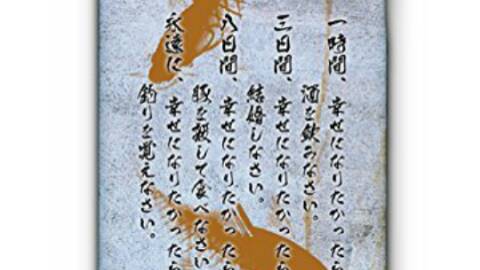 一時間、幸せになりたかったら
酒を飲みなさい。
三日間、幸せになりたかったら
結婚しなさい。
八日間、幸せになりたかったら
豚を殺して食べなさい
永遠に、幸せになりたかったら
釣りを覚えなさい。